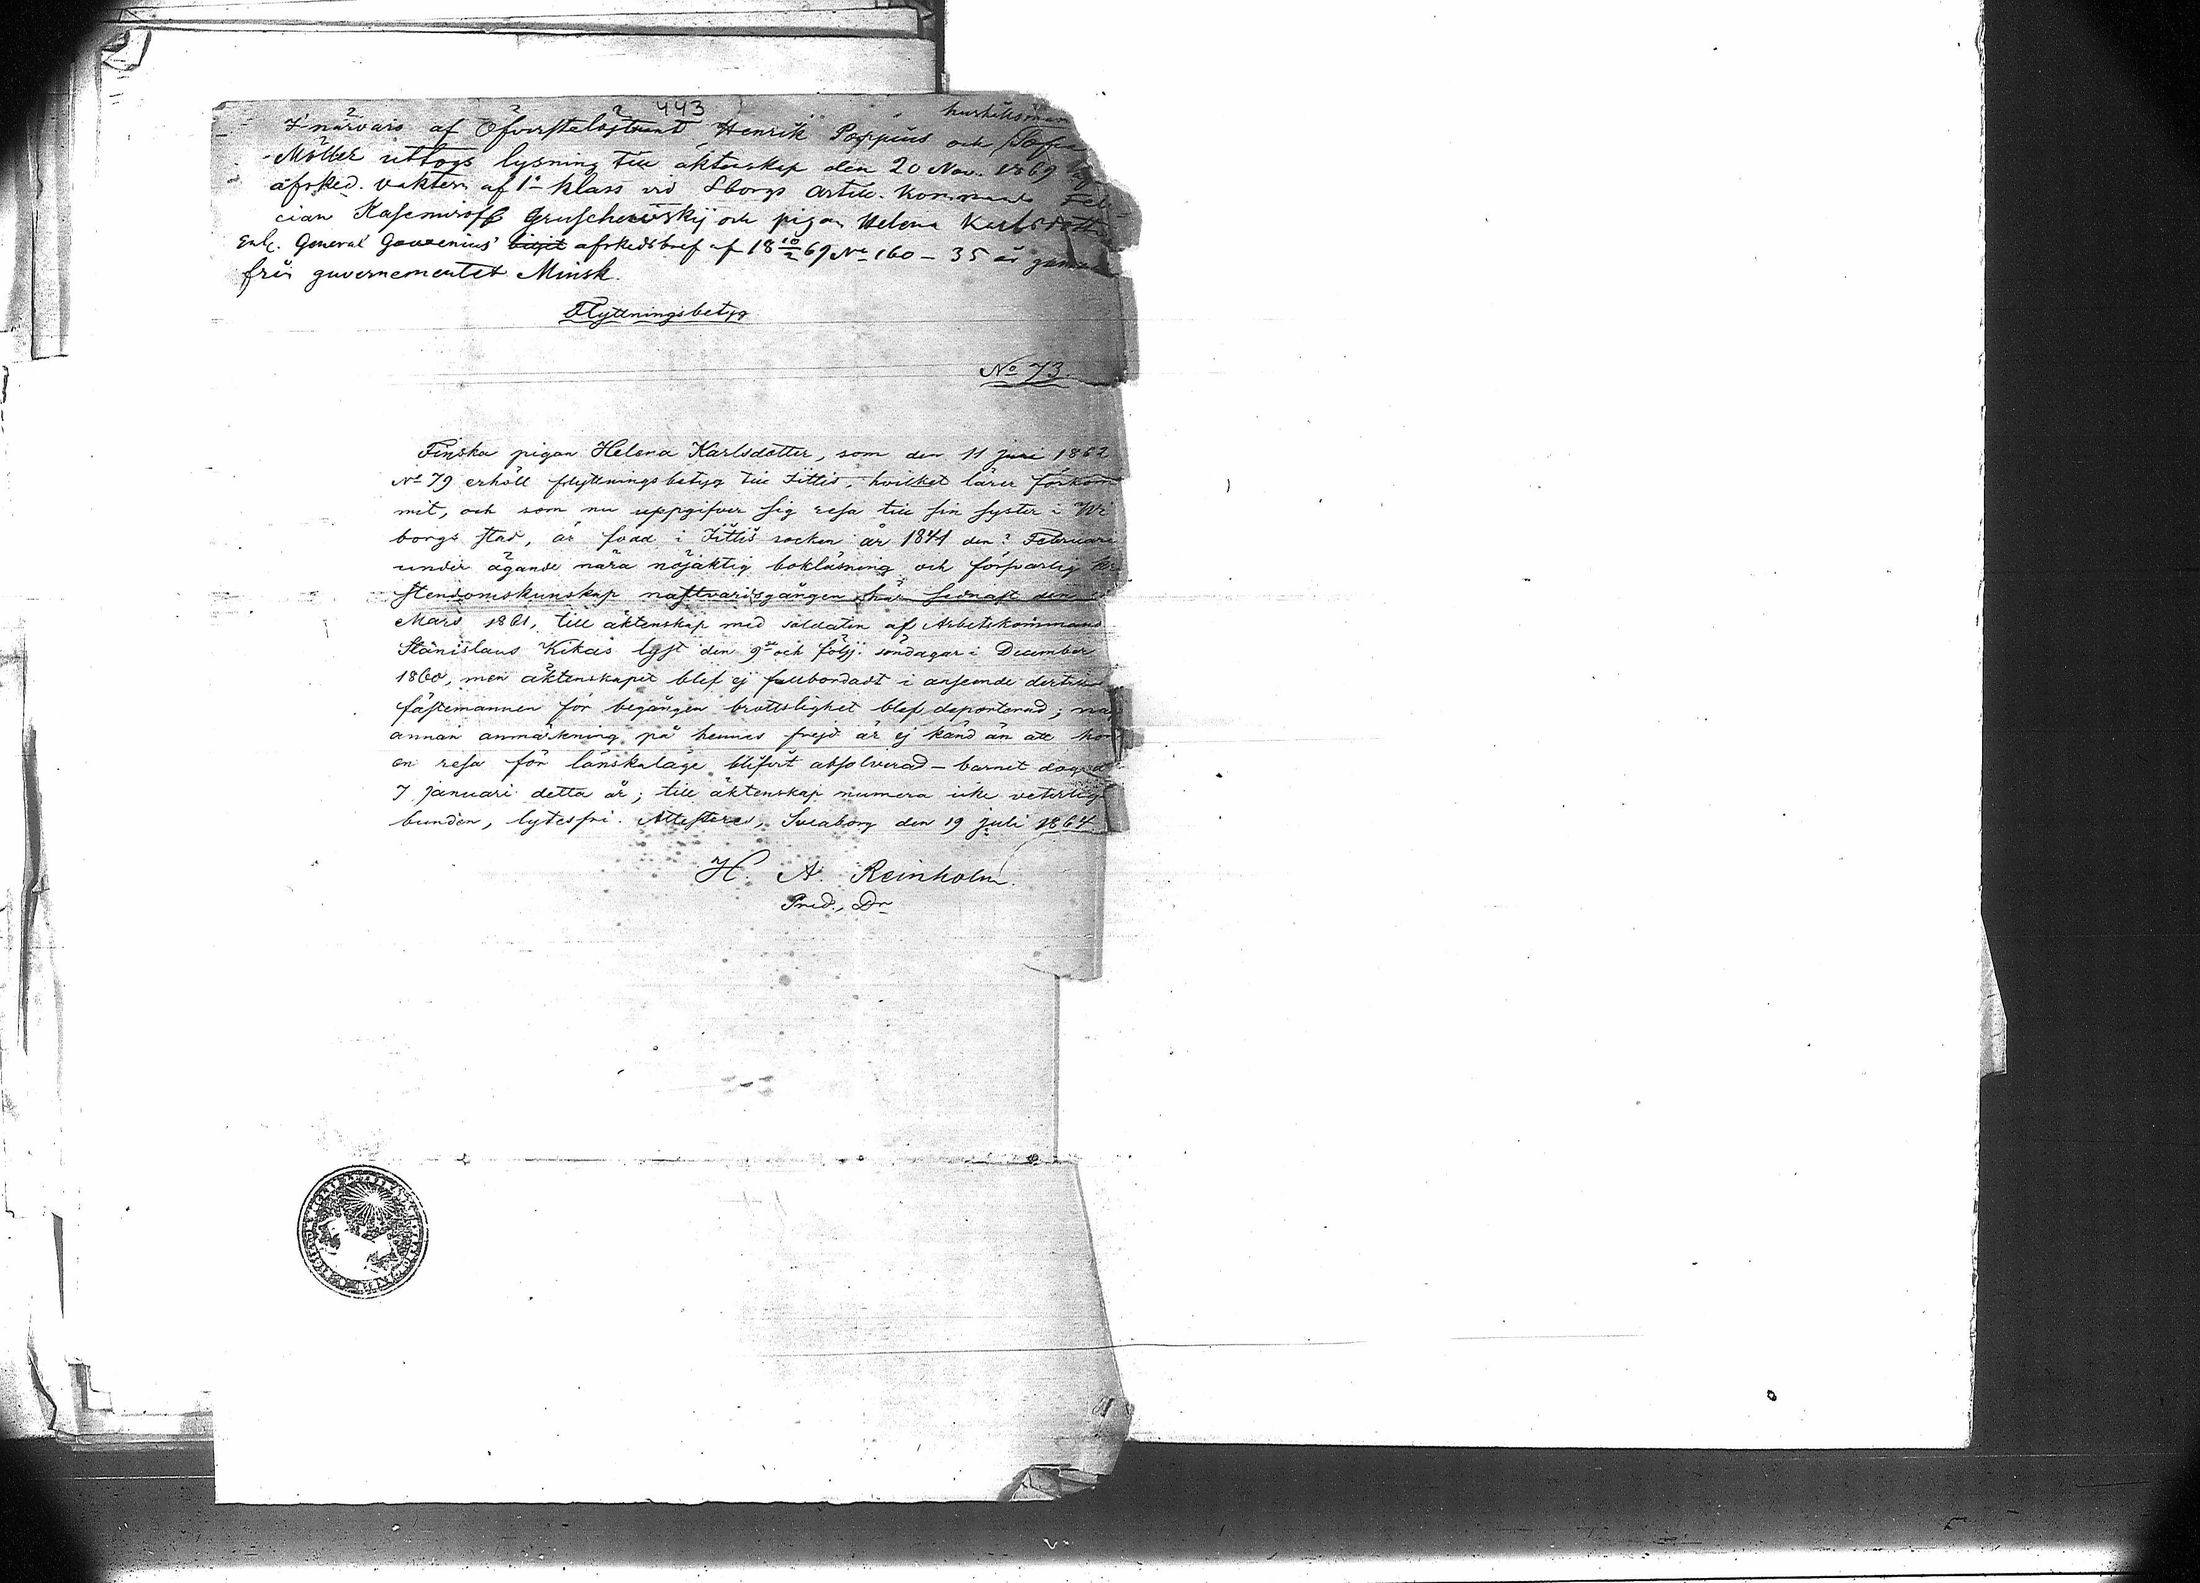 443
hushållsman
I närvaro af Öfverstelöjtnant Henrik Poppius och Sofia
Möller uttogs lysning till äktenskap den 20 Nov. 1869
afsked. vaktern af 1a klass vid Sborgs Artill. Kommando Feli-
cian Kasemiroff Gruschewskij och pigan Helena Karlsdotter
Enl. General afskedsbref af 18 10/2 69 No 160 – 35 år gammal
från guvernementet Minsk.
Flyttningsbetyg
No 73.
Finska pigan Helena Karlsdotter, som den 11 juni 1862
No 79 erhöll flyttningsbetyg till Jittis, hvilket lärer förkom
mit, och som nu uppgifver sig resa till sin syster i Wi
borgs stad, är född i Jittis socken år 1841 den ? Februari
under ägande nära nöjaktig bokläsning och försvarlig kri
stendomskunskap nattvardsgången här sednast den
Mars 1861, till äktenskap med soldaten af Arbetskommando
Stanislaus Kikas lyst den 9de och följ. söndagar i December
1860, men äktenskapet blef ej fullbordadt i anseende dertill
fästemannen för begången brottslighet blef deporterad; någ
annan anmärkning på hennes frejd är ej känd än att hon
en resa för lönskaläge blifvit absolverad – barnet dog d.
7 januari detta år; till äktenskap numera icke veterligt
bunden, lytesfri. Attesterar, Sveaborg den 19 juli 1864
H. A. Reinholm.
Pred., Dr